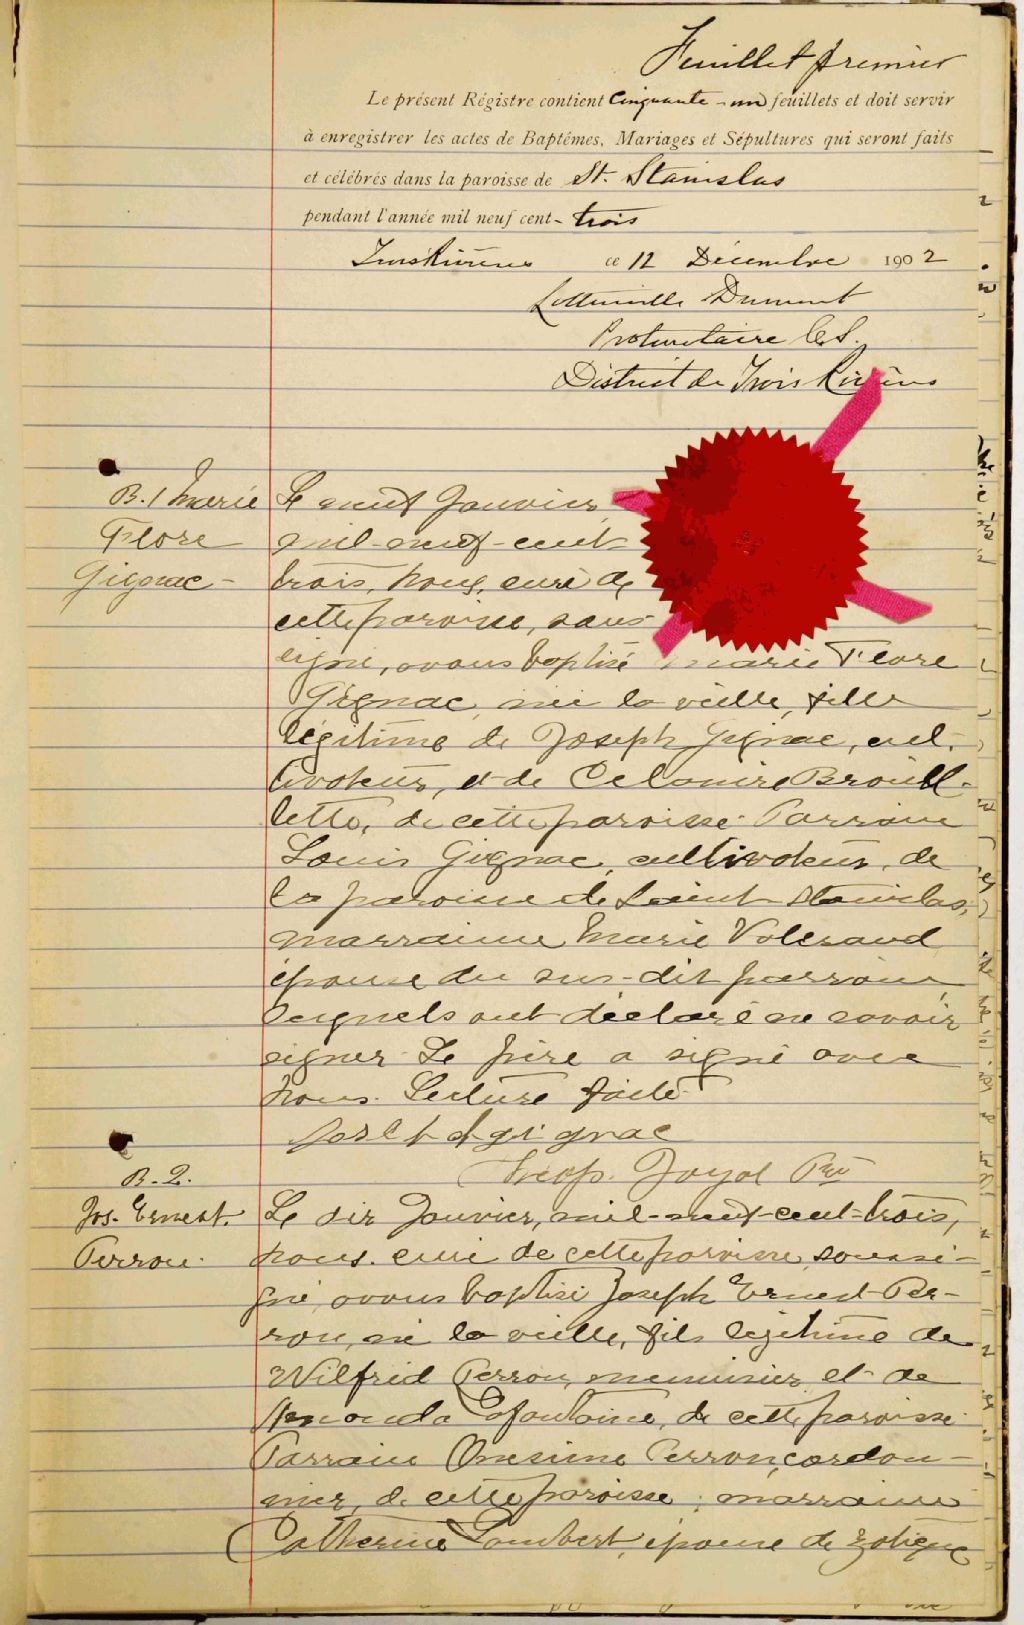 Feuillet premier
Le présent Régistre contient Cinquante-un feuillets et doit servir
à enregistrer les actes de Baptêmes, Mariages et Sépultures qui seront faits
et célébrés dans la paroisse de St. Stanislas
pendant l'année mil neuf cent-trois
Trois Rivières ce 12 Décembre 1902
Lottinville Dumont
Protonotaire C.S.
District de Trois Rivières
B. 1 Marie
Flore
Gignac-
Le neuf Janvier
mil-neuf-cent
trois, nous, curé de
cette paroisse, sous
signé, avons baptisé Marie Flore
Gignac, née la veille, fille
légitime de Joseph Gignac, cul-
tivateur, et de Célanire Brouil-
lette, de cette paroisse. Parrain
Louis Gignac, cultivateur, de
la paroisse de Saint Stanislas,
marraine Marie
épouse du sus-dit parrain,
lesquels ont déclaré ne savoir
signer. Le père a signé avec
nous. Lecture faite
Joseph gignac
Joyal Ptre
B-2.
Jos. Ernest.
Perron.
Le dix Janvier, mil-neuf-cent-trois,
nous, curé de cette paroisse, soussi-
gné, avons baptisé Joseph Ernest Per-
ron, né la veille, fils légitime de
Wilfrid Perron, menuisier, et de
Amanda Lafontaine, de cette paroisse.
Parrain Onesime Perron, cordon-
nier, de cette paroisse; marraine
Catherine Lambert, épouse de Zotique